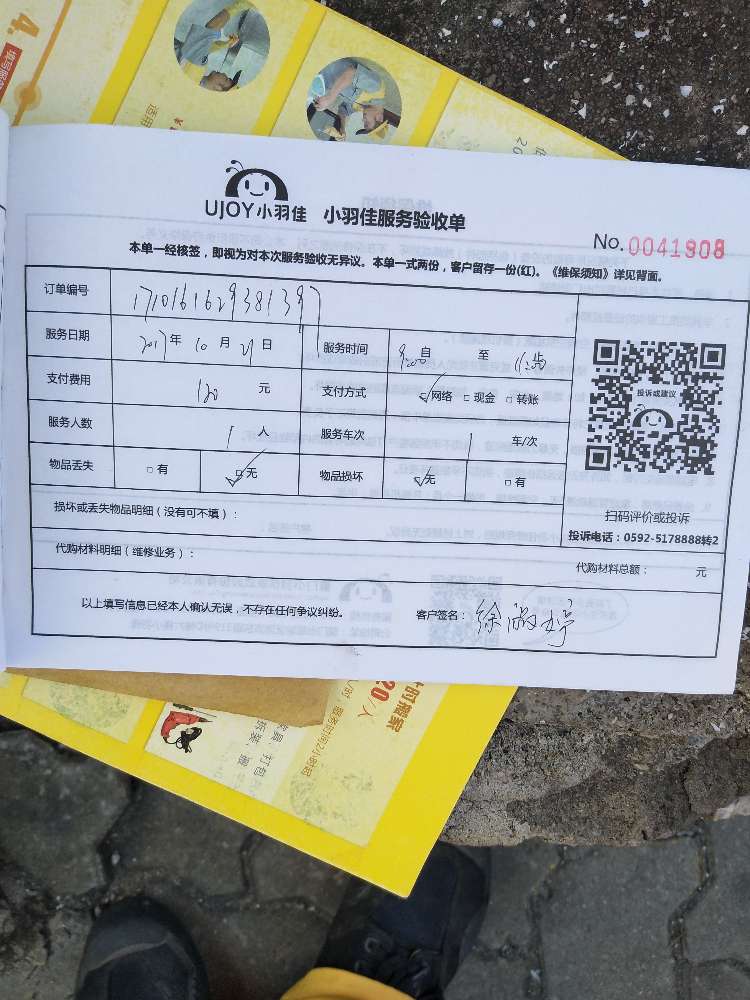 4.
UJOY小羽佳 小羽佳服务验收单
No. 0041908
本单一经核签，即视为对本次服务验收无异议。本单一式两份，客户留存一份(红)。《维保须知》详见背面。
订单编号
服务日期 2017年 10月 21日 服务时间 9:00 自 至 11:00 止
支付费用 120 元 支付方式 ☑网络 □现金 □转账
服务人数 1 人 服务车次 1 车/次
物品丢失 □有 ☑无 物品损坏 ☑无 □有
投诉或建议
扫码评价或投诉
投诉电话：0592-5178888转2
损坏或丢失物品明细（没有可不填）：
代购材料明细（维修业务）： 代购材料总额： 元
以上填写信息已经本人确认无误，不存在任何争议纠纷。 客户签名：徐淑婷
时搬家
20/人
服务时间2小时起